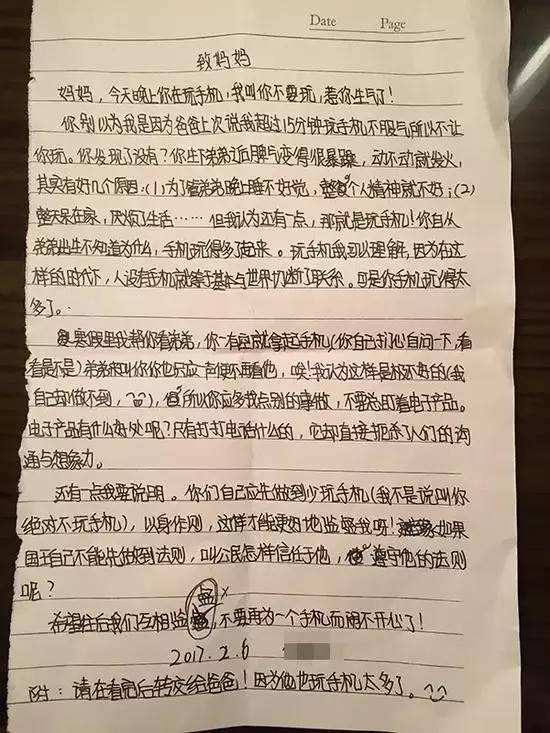 Date Page
致妈妈
妈妈，今天晚上你在玩手机，我叫你不要玩，惹你生气了！
你别以为我是因为爸爸上次说我超过15分钟玩手机不服气所以不让
你玩。你发现了没有？你生下弟弟近脾气变得很暴躁，动不动就发火，
其实有好几个原因：(1)为了管弟弟晚上睡不好觉，整个人精神就不好；(2)
整天呆在家，厌烦了生活……但我认为还有一点，那就是玩手机！你自从
弟弟出生不知道为什么，手机玩得多了起来。玩手机我可以理解，因为在这
样的时代下，人没有手机就等于基本与世界切断了联系。可是你手机玩得太
多了。
寒假里我帮你看弟弟，你一有空就拿起手机(你自己扪心自问一下，看
看是不是)弟弟来叫你你也只应一声便不再看他，唉！我认为这样是极不好的(我
自己却做不到，)，所以你应多找点别的事做，不要总盯着电子产品。
电子产品有什么好处呢？只有打打电话什么的，它却直接扼杀了人们的沟
通与想象力。
还有一点我要说明。你们自己应先做到少玩手机(我不是说叫你
绝对不玩手机)，以身作则，这样才能更好地监督我呀！如果
国王自己不能先做到法则，叫公民怎样信任于他，遵守他的法则
呢？
希望往后我们互相监督，不要再为一个手机而闹不开心了！
2017.2.6
附：请在看完后转交给爸爸！因为他也玩手机太多了。